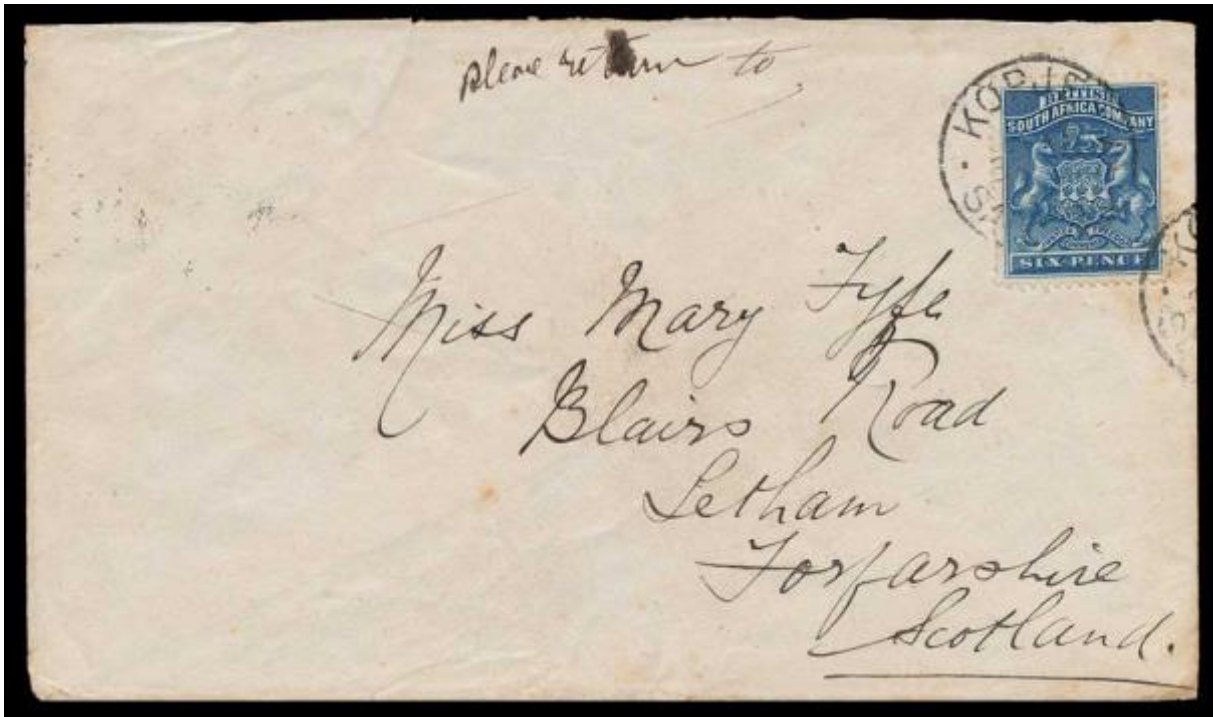 please return to
KOPJE
BRITISH
SOUTH AFRICA COMPANY
SIX PENCE
Miss Mary Fyfe
Blairs Road
Letham
Forfarshire
Scotland.